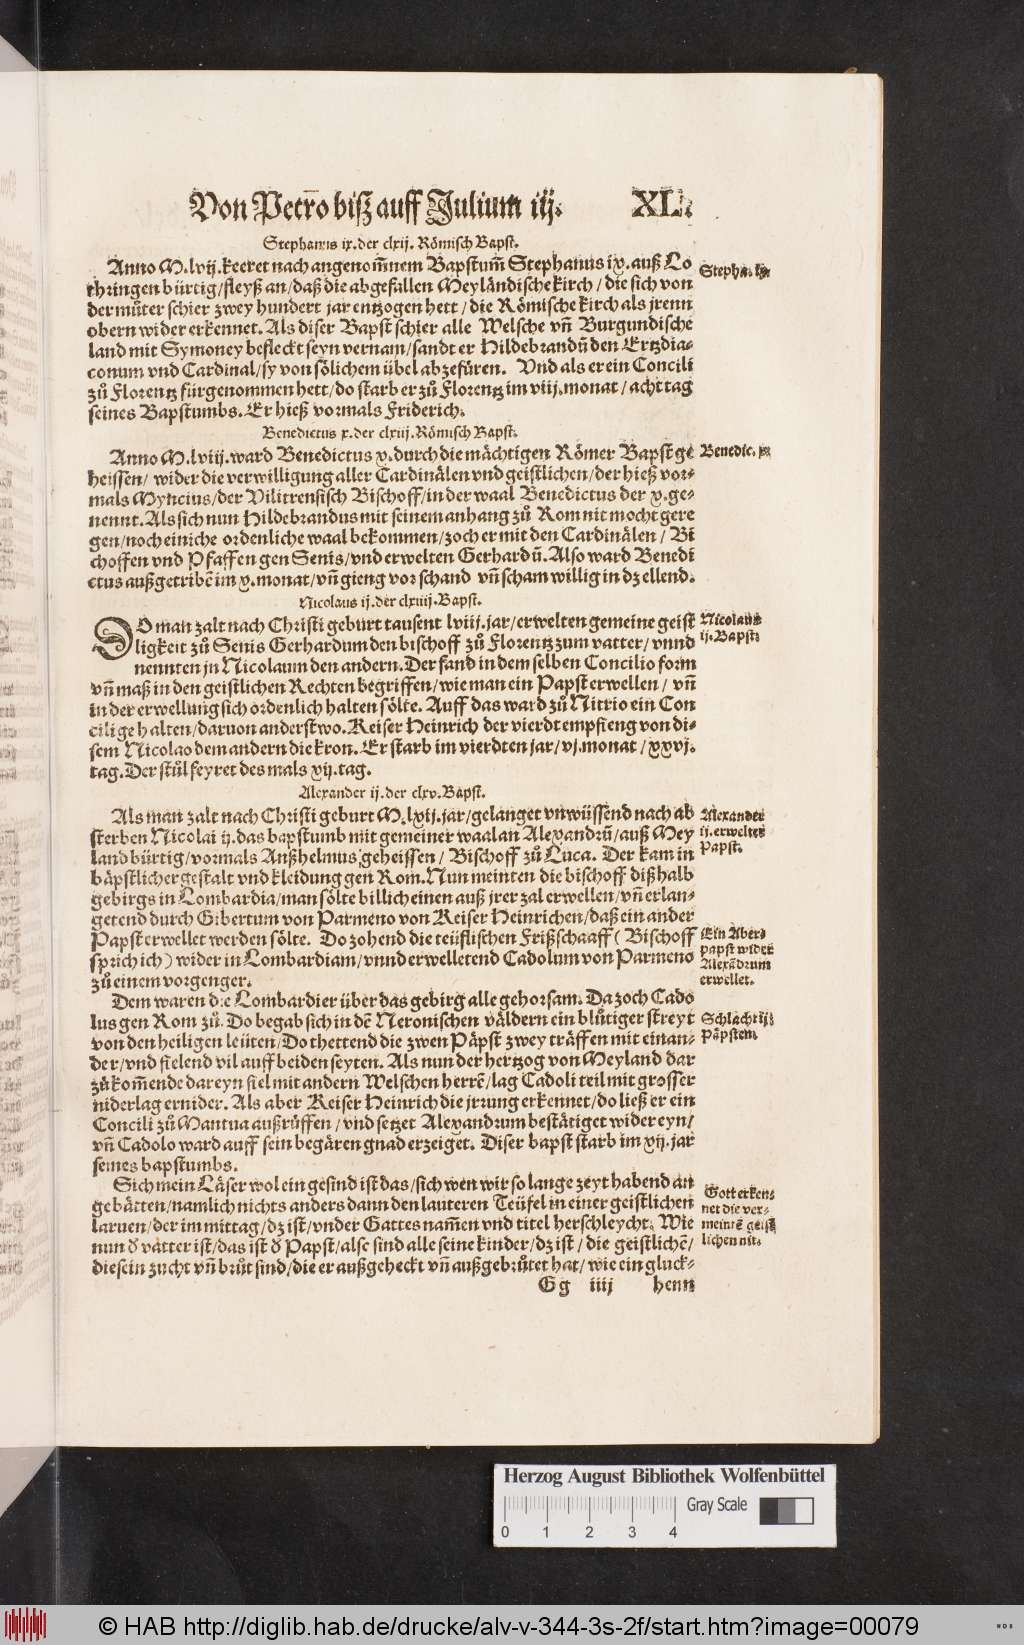 Von Petro biß auff Julium iij. XL.
Stephanus ix. der clxij. Römisch Bapst.
Anno M.lvij. keeret nach angenom̄nem Bapstum̄ Stephanus ix. auß Lo
thringen bürtig/ fleyß an/ daß die abgefallen Meyländische kirch/ die sich von
der můter schier zwey hundert jar entzogen hett/ die Römische kirch als jrenn
obern wider erkennet. Als diser Bapst schier alle Welsche vn̄ Burgundische
land mit Symoney befleckt seyn vernam/ sandt er Hildebrandū den Ertzdia-
conum vnd Cardinal/ sy von sölichem übel abzefüren. Vnd als er ein Concili
zů Florentz fürgenommen hett/ do starb er zů Florentz im viij. monat/ acht tag
seines Bapstumbs. Er hieß vormals Friderich.
Stepha. ix
Benedictus x. der clxiij. Römisch Bapst.
Anno M.lviij. ward Benedictus x. durch die mächtigen Römer Bapst ge
heissen/ wider die verwilligung aller Cardinälen vnd geistlichen/ der hieß vor-
mals Myncius/ der Vilitrensisch Bischoff/ in der waal Benedictus der x. ge-
nennt. Als sich nun Hildebrandus mit seinem anhang zů Rom nit mocht gere
gen/ noch einiche ordenliche waal bekommen/ zoch er mit den Cardinälen/ Bi
schoffen vnd Pfaffen gen Senis/ vnd erwelten Gerhardū. Also ward Benedi
ctus außgetribē im x. monat/ vn̄ gieng vor schand vn̄ scham willig in dz ellend.
Benedic. x
Nicolaus ij. der clxiiij. Bapst.
DO man zalt nach Christi geburt tausent lviij. jar/ erwelten gemeine geist
ligkeit zů Senis Gerhardum den bischoff zů Florentz zum vatter/ vnnd
nennten jn Nicolaum den andern. Der fand in dem selben Concilio form
vn̄ maß in den geistlichen Rechten begriffen/ wie man ein Papst erwellen/ vn̄
in der erwellung sich ordenlich halten sölte. Auff das ward zů Nitrio ein Con
cili gehalten/ daruon anderstwo. Keiser Heinrich der vierdt empfieng von di-
sem Nicolao dem andern die kron. Er starb im vierdten jar/ vj. monat/ xxvj.
tag. Der stůl feyret des mals xij. tag.
Nicolaus
ij. Bapst.
Alexander ij. der clxv. Bapst.
Als man zalt nach Christi geburt M.lxij. jar/ gelanget vnwüssend nach ab
sterben Nicolai ij. das bapstumb mit gemeiner waal an Alexandrū/ auß Mey
land bürtig/ vormals Anßhelmus geheissen/ Bischoff zů Luca. Der kam in
bäpstlicher gestalt vnd kleidung gen Rom. Nun meinten die bischoff dißhalb
gebirgs in Lombardia/ man sölte billich einen auß jrer zal erwellen/ vn̄ erlan-
getend durch Gibertum von Parmeno von Keiser Heinrichen/ daß ein ander
Papst erwellet werden sölte. Do zohend die teüflischen Frißschaaff (Bischoff
sprich ich) wider in Lombardiam/ vnnd erwelletend Cadolum von Parmeno
zů einem vorgenger.
Alexander
ij. erwelter
Papst.
Ein Aber-
papst wider
Alexādrum
erwellet.
Dem waren die Lombardier über das gebirg alle gehorsam. Da zoch Cado
lus gen Rom zů. Do begab sich in dē Neronischen väldern ein blůtiger streyt
von den heiligen leüten/ Do thettend die zwen Päpst zwey träffen mit einan-
der/ vnd fielend vil auff beiden seyten. Als nun der hertzog von Meyland dar
zů kom̄ende dareyn fiel mit andern Welschen herrē/ lag Cadoli teil mit grosser
niderlag ernider. Als aber Keiser Heinrich die jrrung erkennet/ do ließ er ein
Concili zů Mantua außrüffen/ vnd setzet Alexandrum bestätiget wider eyn/
vn̄ Cadolo ward auff sein begären gnad erzeiget. Diser bapst starb im xij. jar
seines bapstumbs.
Schlacht ij.
Päpsten.
Sich mein Läser wol ein gesind ist das/ sich wen wir so lange zeyt habend an
gebätten/ namlich nichts anders dann den lauteren Teüfel in einer geistlichen
laruen/ der im mittag/ dz ist/ vnder Gattes nam̄en vnd titel herschleycht. Wie
nun d̄ vatter ist/ das ist d̄ Papst/ also sind alle seine kinder/ dz ist/ die geistlichē/
die sein zucht vn̄ brůt sind/ die er außgeheckt vn̄ außgebrůtet hat/ wie ein gluck-
Gott erken-
net die ver-
meintē geist
lichen nit.
Gg iiij henn
Herzog August Bibliothek Wolfenbüttel
Gray Scale
0 1 2 3 4
© HAB http://diglib.hab.de/drucke/alv-v-344-3s-2f/start.htm?image=00079